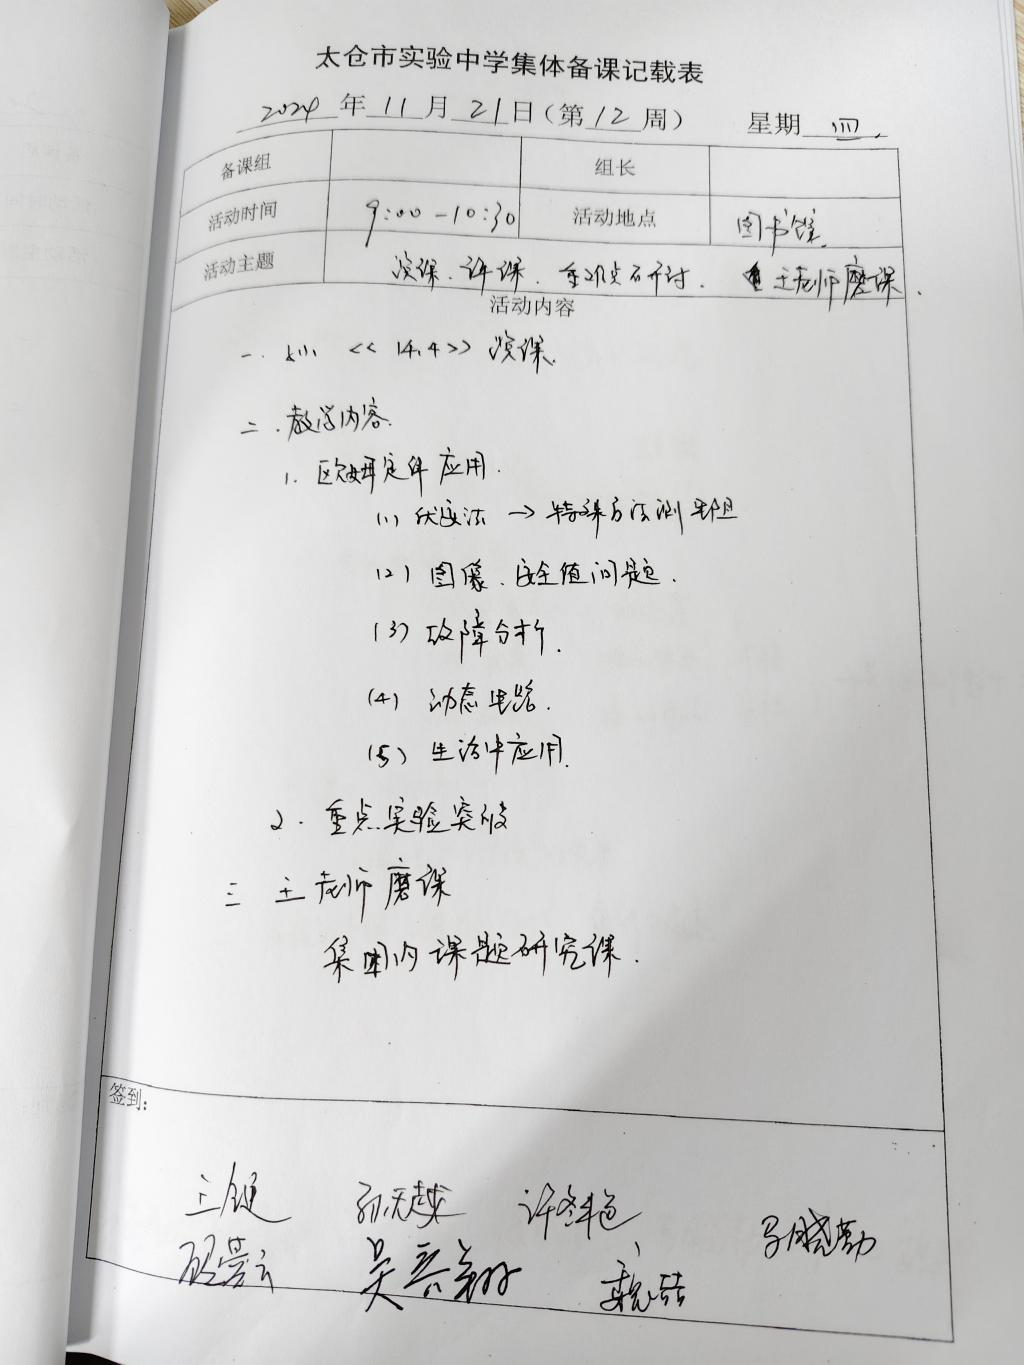 太仓市实验中学集体备课记载表
2024年11月21日(第12周) 星期四.
备课组 组长
活动时间 9:00-10:30 活动地点 图书馆.
活动主题 演课、评课. 重难点研讨. 王老师磨课.
活动内容
一. <<14.4>> 演课.
二. 教学内容.
1. 欧姆定律应用.
(1) 伏安法 → 特殊方法测电阻
(2) 图像、安全值问题.
(3) 故障分析.
(4) 动态电路.
(5) 生活中应用.
2. 重点实验突破
三 王老师磨课
集团内课题研究课.
签到: